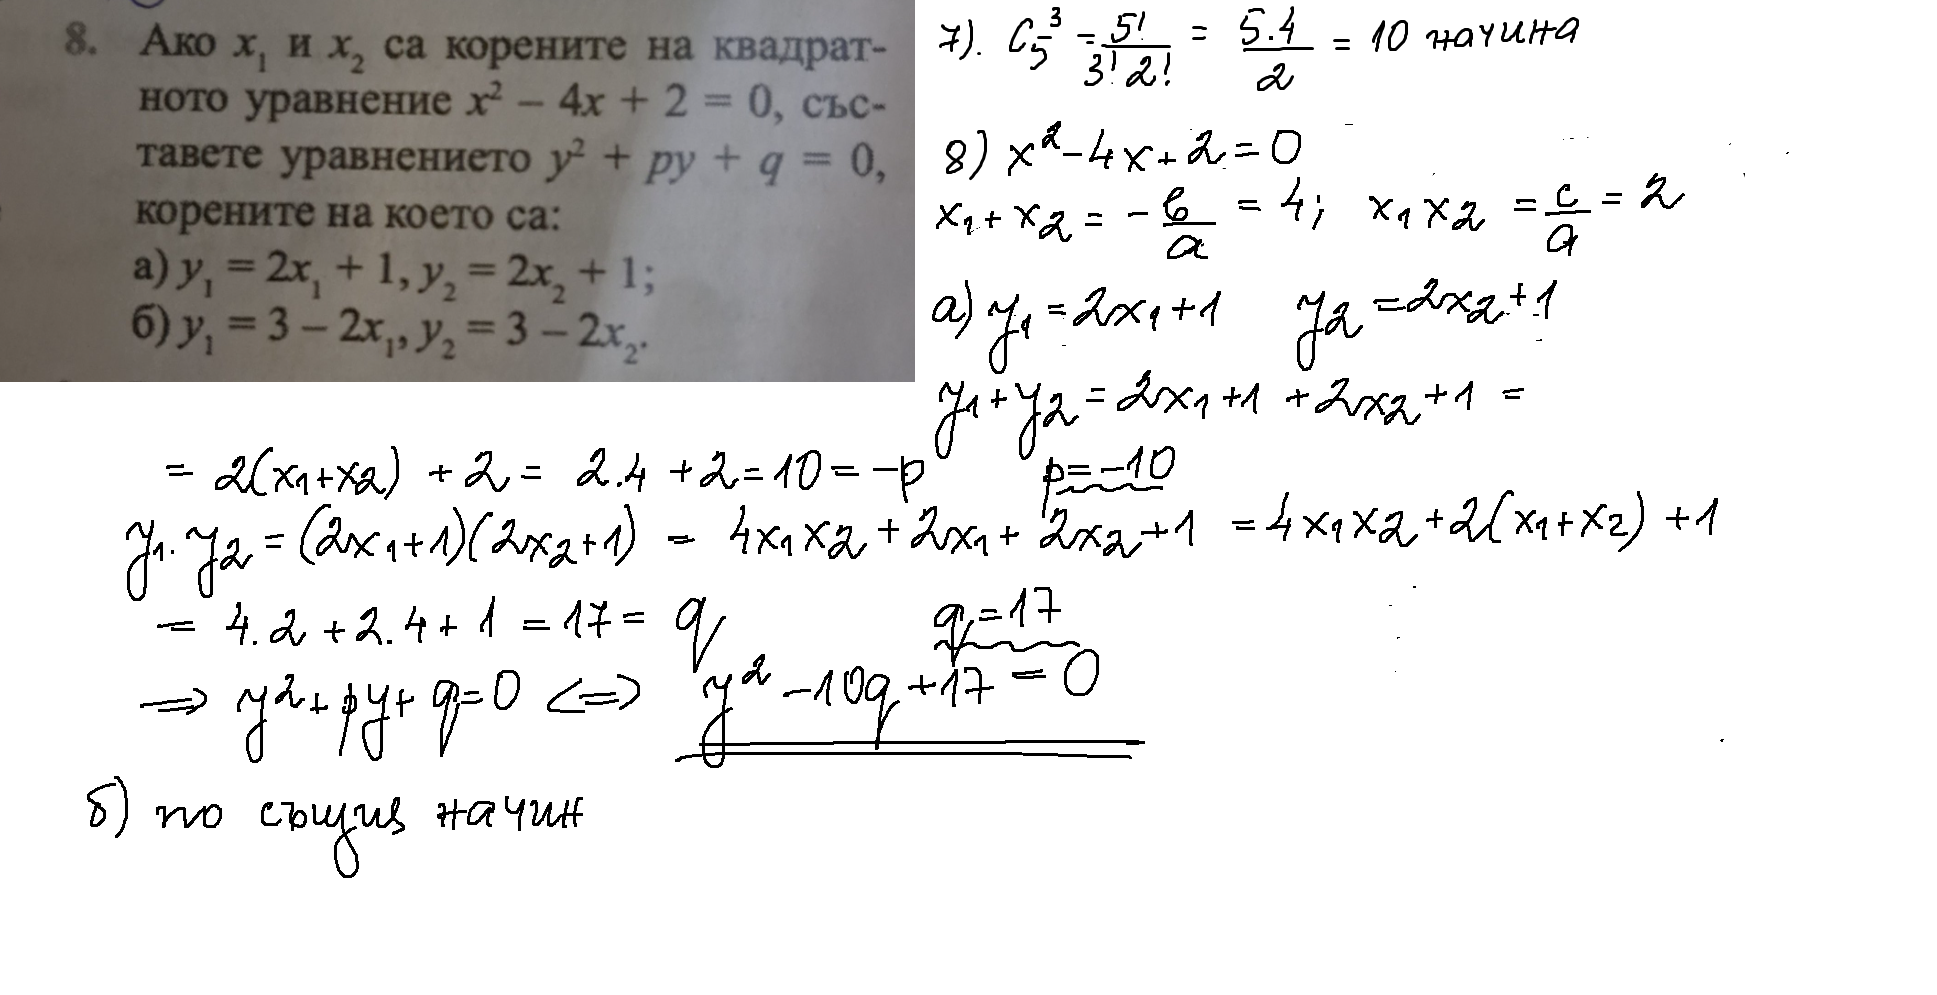 8. Ако x₁ и x₂ са корените на квадрат-
ното уравнение x² – 4x + 2 = 0, със-
тавете уравнението y² + py + q = 0,
корените на което са:
а) y₁ = 2x₁ + 1, y₂ = 2x₂ + 1;
б) y₁ = 3 – 2x₁, y₂ = 3 – 2x₂.
7). C₅³ = 5!/3!2! = 5.4/2 = 10 начина
8) x² - 4x + 2 = 0
x₁ + x₂ = - b/a = 4; x₁x₂ = c/a = 2
а) y₁ = 2x₁ + 1 y₂ = 2x₂ + 1
y₁ + y₂ = 2x₁ + 1 + 2x₂ + 1 =
= 2(x₁ + x₂) + 2 = 2.4 + 2 = 10 = -p p = -10
y₁. y₂ = (2x₁ + 1)(2x₂ + 1) = 4x₁x₂ + 2x₁ + 2x₂ + 1 = 4x₁x₂ + 2(x₁ + x₂) + 1
= 4.2 + 2.4 + 1 = 17 = q q = 17
=> y² + py + q = 0 <=> y² - 10q + 17 = 0
б) по същия начин